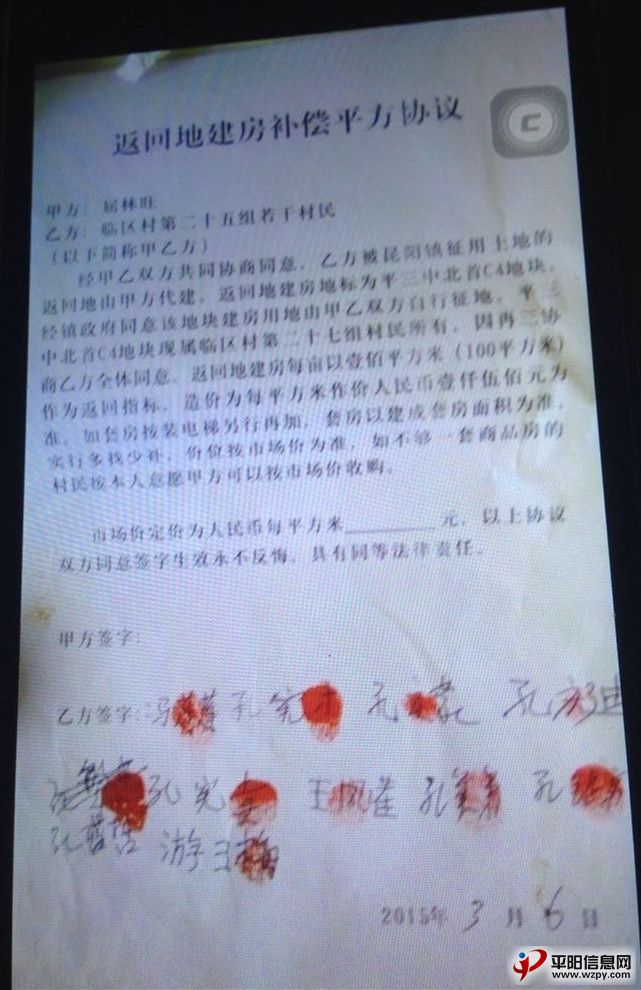 返回地建房补偿平方协议
C
甲方：屈林旺
乙方：临区村第二十五组若干村民
（以下简称甲乙方）
经甲乙双方共同协商同意，乙方被昆阳镇征用土地的
返回地由甲方代建，返回地建房地标为平三中北首C4地块，
经镇政府同意该地块建房用地由甲乙双方自行征地。平三
中北首C4地块现属临区村第二十七组村民所有，因再三协
商乙方全体同意，返回地建房每亩以壹佰平方米（100平方米）
作为返回指标，造价为每平方米作价人民币壹仟伍佰元为
准，如套房按装电梯另行再加，套房以建成套房面积为准，
实行多找少补，价位按市场价为准，如不够一套商品房的
村民按本人意愿甲方可以按市场价收购。
市场价定价为人民币每平方米________元，以上协议
双方同意签字生效永不反悔，具有同等法律责任。
甲方签字：
乙方签字：冯 孔宪 孔 孔
孔宪 王凤 孔 孔
孔 游玉梅
2015年3月6日
平阳信息网
www.wzpy.com